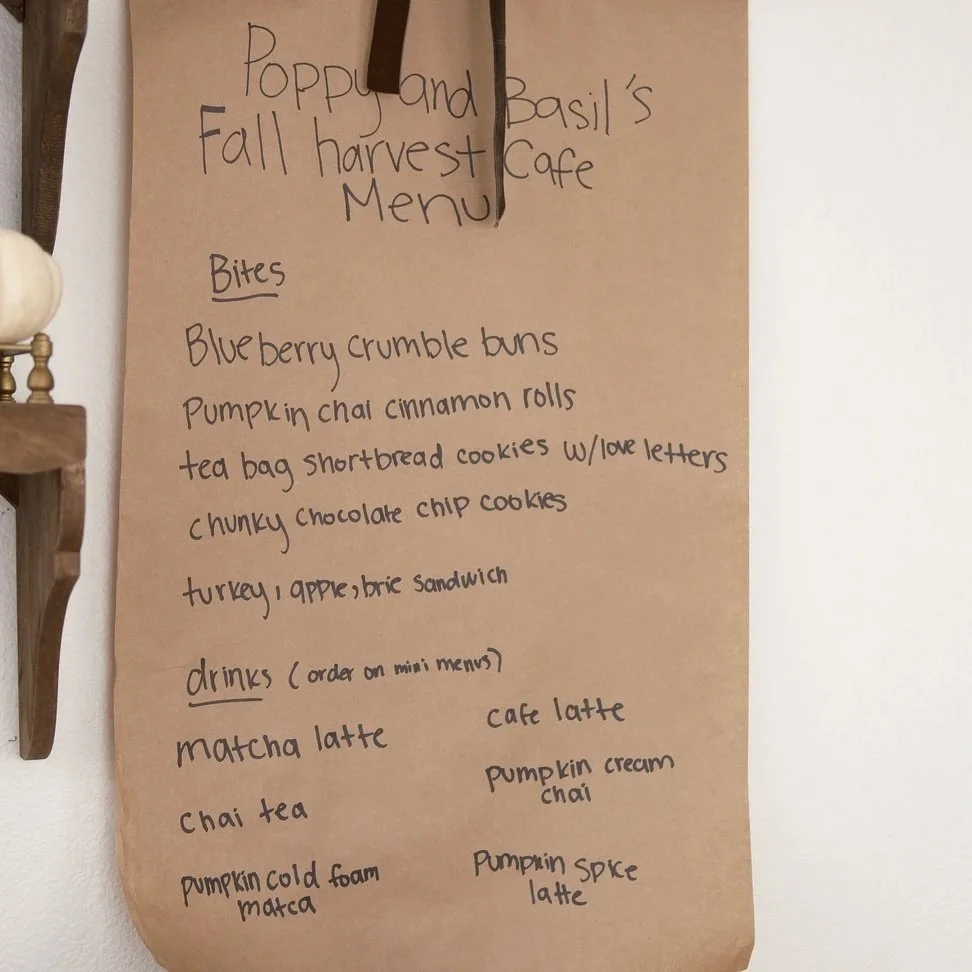 Poppy and Basil's
Fall harvest Cafe
Menu
Bites
Blueberry crumble buns
Pumpkin chai cinnamon rolls
tea bag shortbread cookies w/love letters
chunky chocolate chip cookies
turkey, apple, brie sandwich
drinks (order on mini menus)
matcha latte
chai tea
pumpkin cold foam
matca
cafe latte
pumpkin cream
chai
Pumpkin spice
latte